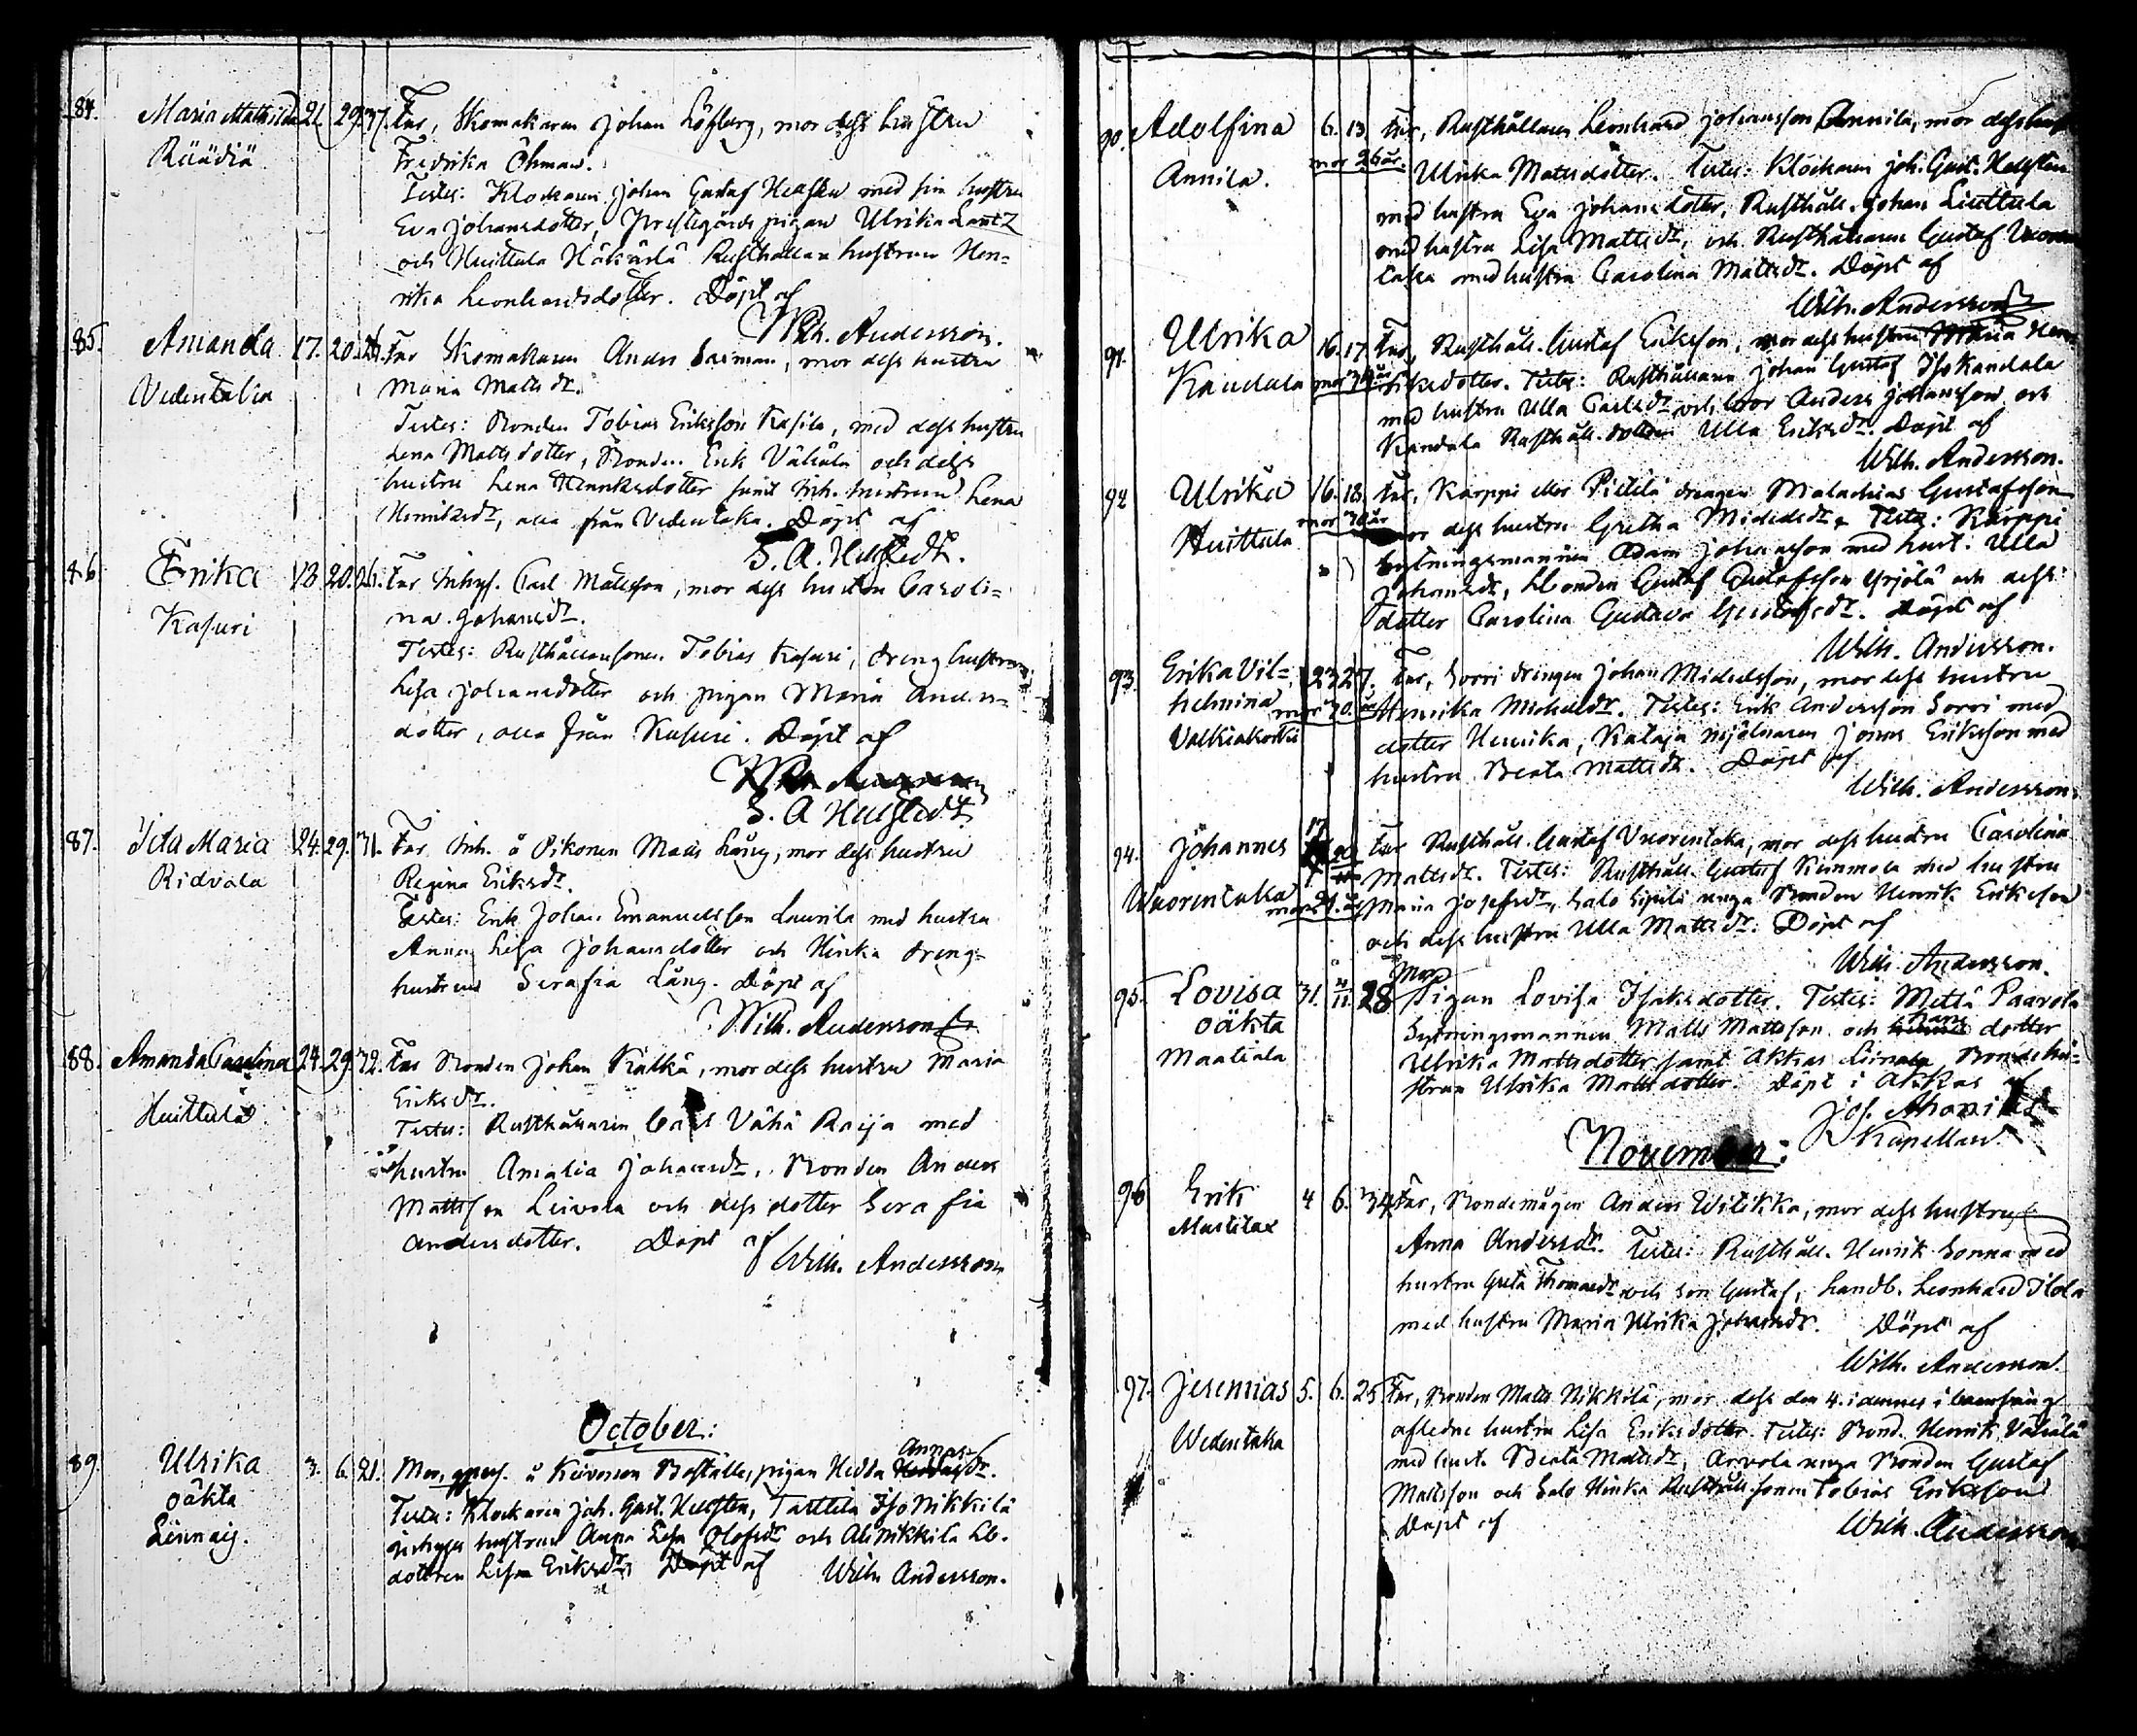 84. Maria Mathilda 21. 29. 37. Far, Skomakaren Johan Löfberg, mor dess hustru
Räädiä Fredrika Öhman.
Testes: Klockaren Johan Gustaf Hellsten med sin hustru
Eva Johansdotter, Prestegårds pigan Ulrika Lantz
och Huittula Häkärlä Rusthållare hustrun Hen=
rika Leonhardsdotter. Döpt af
Wilh. Andersson.
85. Amanda 17. 20. Far Skomakaren Anders, mor dess hustru
Vedentaka Maria Mattsdr.
Testes: Bonden Tobias Eriksson Kasila, med dess hustru
Lena Mattsdotter, Bonden Erik Vähälä och dess
hustru Lena Henriksdotter samt Inh. hustrun Lena
Henriksdr, alla från Vedentaka. Döpt af
S. A. Hellstedt.
86. Erika 13 20. 26. Far Inhys. Carl Mattsson, mor dess hustru Caroli=
Kasuri na Johansdr.
Testes: Rusthållaresonen Tobias Kasuri, dreng hustrun
Lisa Johansdotter och pigan Maria Anders=
dotter, alla från Kasuri. Döpt af
S. A Hellstedt
87. Ita Maria 24. 29. 31. Far Inh. å Pikonen Matts Lång, mor dess hustru
Ridvala Regina Eriksdr.
Testes: Erik Johan Emanuelsson Laurila med hustru
Anna Lisa Johansdotter och Hinka dreng=
hustrun Serafia Lång. Döpt af
Wilh. Andersson
88. Amanda Carolina 24. 29. 32. Far Bonden Johan Kälkä, mor dess hustru Maria
Huittula Eriksdr.
Testes: Rusthållaren Carl Vähä Raija med
hustru Amalia Johansdr. Bonden Anders
Mattsson Leivola och dess dotter Serafia
Andersdotter. Döpt af
Wilh. Andersson
October:
89. Ulrika 3. 6. 21. Mor, å Boställe, pigan Hedda Annasdr.
oäkta Testes: Klockaren Joh. Gust. Hellsten, Tarttila Iso Nikkilä
Linnaig. inhyses hustrun Anna Lisa Olofsdr och Ali Nikkilä Lb.
dottren Lisa Eriksdr Döpt af Wilh. Andersson.
90. Adolfina 6. 13. Far, Rusthållaren Leonhard Johansson Annila, mor dess hust
Annila. mor 26 år. Ulrika Mattsdotter. Testes: Klockaren Joh. Gust. Hellsten
med hustru Eva Johansdotter, Rusthåll. Johan Liuttula
med hustru Lisa Mattsdr, och Rusthållaren Gustaf Vuoren
taka med hustru Carolina Mattsdr. Döpt af
Wilh. Andersson
91. Ulrika 16. 17. Far, Rusthåll. Gustaf Eriksson, mor dess hustru Maria Hen
Kandala mor 34 år riksdotter. Testes: Rusthållaren Johan Gustaf Iso Kandala
med hustru Ulla Carlsdr och bror Anders Johansson och
Kandala Rusthåll. dottren Ulla Eriksdr. Döpt af
Wilh. Andersson.
92 Ulrika 16. 18. Far, Karppi eller Pietilä drengen Malachias Gustafsson
Huittula mor 30 år mor dess hustru Gretha Michelsdr. Testes: Karppi
Sytningsmannen Adam Johansson med hust. Ulla
Johansdr, Bonden Gustaf Gustafsson Yrjölä och dess
dotter Carolina Gustava Gustafsdr. Döpt af
Wilh. Andersson.
93. Erika Vil= 23 27. Far, Sorri drengen Johan Michelsson, mor dess hustru
helmina mor 30. år Henrika Michelsdr. Testes: Erik Andersson Sorri med
Valkiakoski dotter Henrika, Kataja mjölnaren Jonas Eriksson med
hustru Beata Mattsdr. Döpt af
Wilh. Andersson.
94. Johannes 17 Far Rusthåll. Gustaf Vuorentaka, mor dess hustru Carolina
Wuorentaka Mattsdr. Testes: Rusthåll. Gustaf med hustru
Maria Josefsdr, Salo unga Bonden Henrik Eriksson
och dess hustru Ulla Mattsdr. Döpt af
Wilh. Andersson.
95. Lovisa 31. 11. 28 Mor Pigan Lovisa Isaksdotter. Testes: Metsä Paavola
oäkta Sytningsmannen Matts Mattsson och hans dotter
Maatiala Ulrika Mattsdotter samt Akkas Bondehu=
strun Ulrika Mattsdotter. Döpt i Akkas af
Kapellan.
November:
96 Erik 4 6. 34 Far, Bondemågen Anders Wilikka, mor dess hustru
Anna Andersdr. Testes: Rusthåll. Henrik Sonna med
hustru Greta Thomasdr och son Gustaf, Landb. Leonhard Ilola
med hustru Maria Ulrika Johansdr. Döpt af
Wilh. Andersson.
97. Jeremias 5. 6. 25 Far, Bonden Matts Nikkilä, mor dess den 4. i dennes i barnsäng
Wedentaka aflidne hustru Lisa Eriksdotter. Testes: Bond. Henrik Vähälä
med hust. Beata Mattsdr, Arvola unga Bonden Gustaf
Mattsson och Salo Hinka Rusthåll. sonen Tobias Eriksson
Döpt af Wilh. Andersson